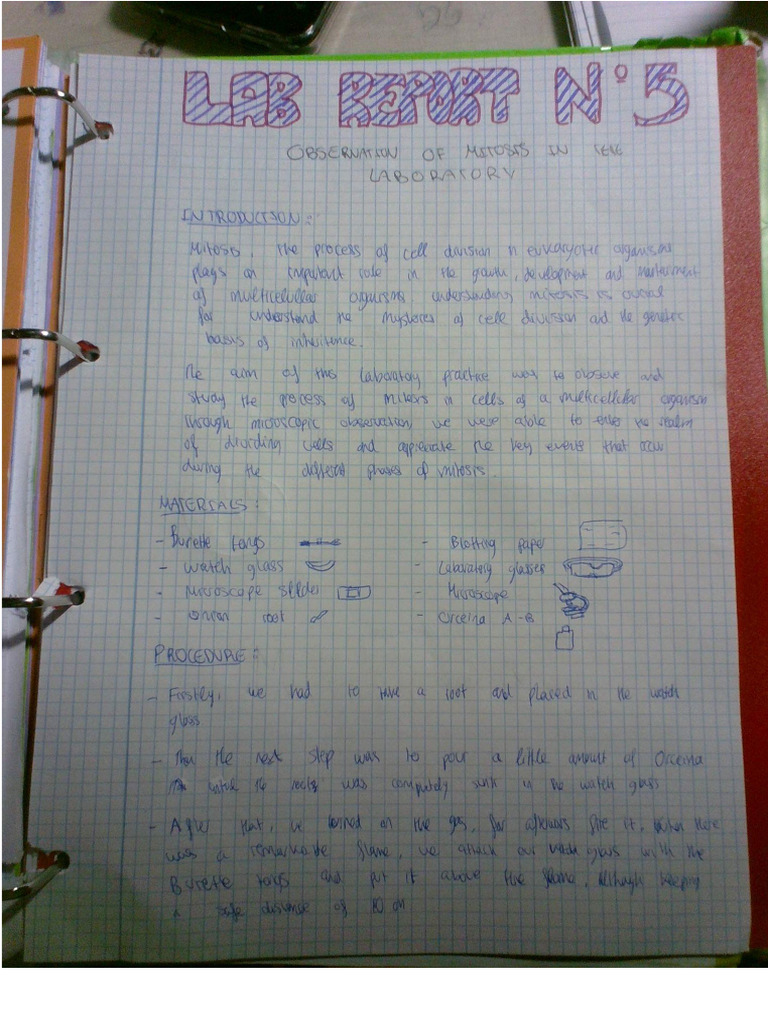 LAB REPORT Nº5
OBSERVATION OF MITOSIS IN
LABORATORY
INTRODUCTION:
Mitosis, the process of cell division in eukaryotic organisms
plays an important role in the growth, development and
of multicellular organisms understanding mitosis is crucial
for understand the mysteries of cell division and the genetic
basis of inheritence.
The aim of this laboratory practice was to observe and
study the process of mitosis in cells of a multicellular organism
through microscopic observation, we were able to enter the realm
of dividing cells and appreciate the key events that occur
during the different phases of mitosis.
MATERIALS:
- Burette tongs - Blotting paper
- Watch glass - Laboratory glasses
- Microscope slides - Microscope
- Onion root - Orceina A-B
PROCEDURE:
- Firstly, we had to take a root and placed in the watch
glass
- Then the next step was to pour a little amount of Orceina
the was completely sunk in the watch glass
- After that, we turned on the gas, for afterwards fire it, when there
was a remarkable flame, we attach our watch glass with the
Burette tongs and put it above the flame, although keeping
a safe distance of 10 cm